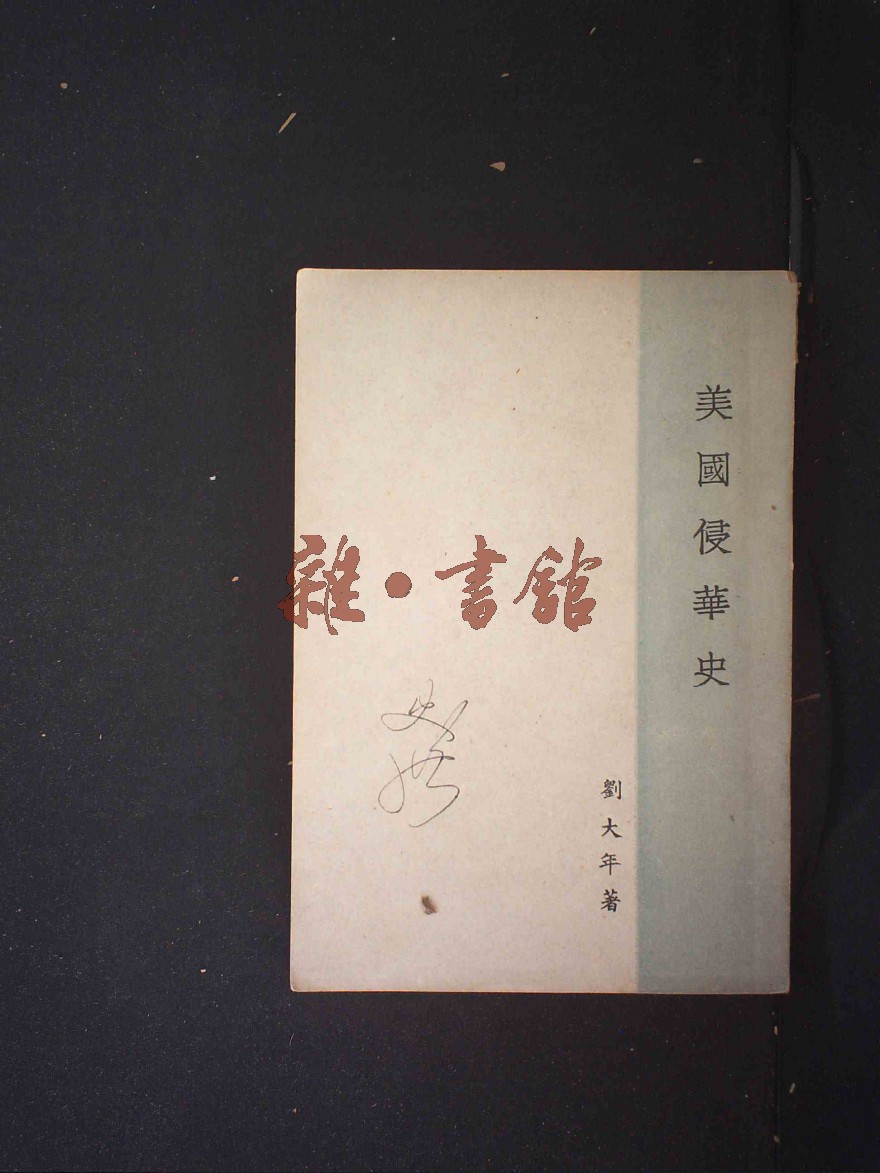 美國侵華史
劉大年著
雜·書館